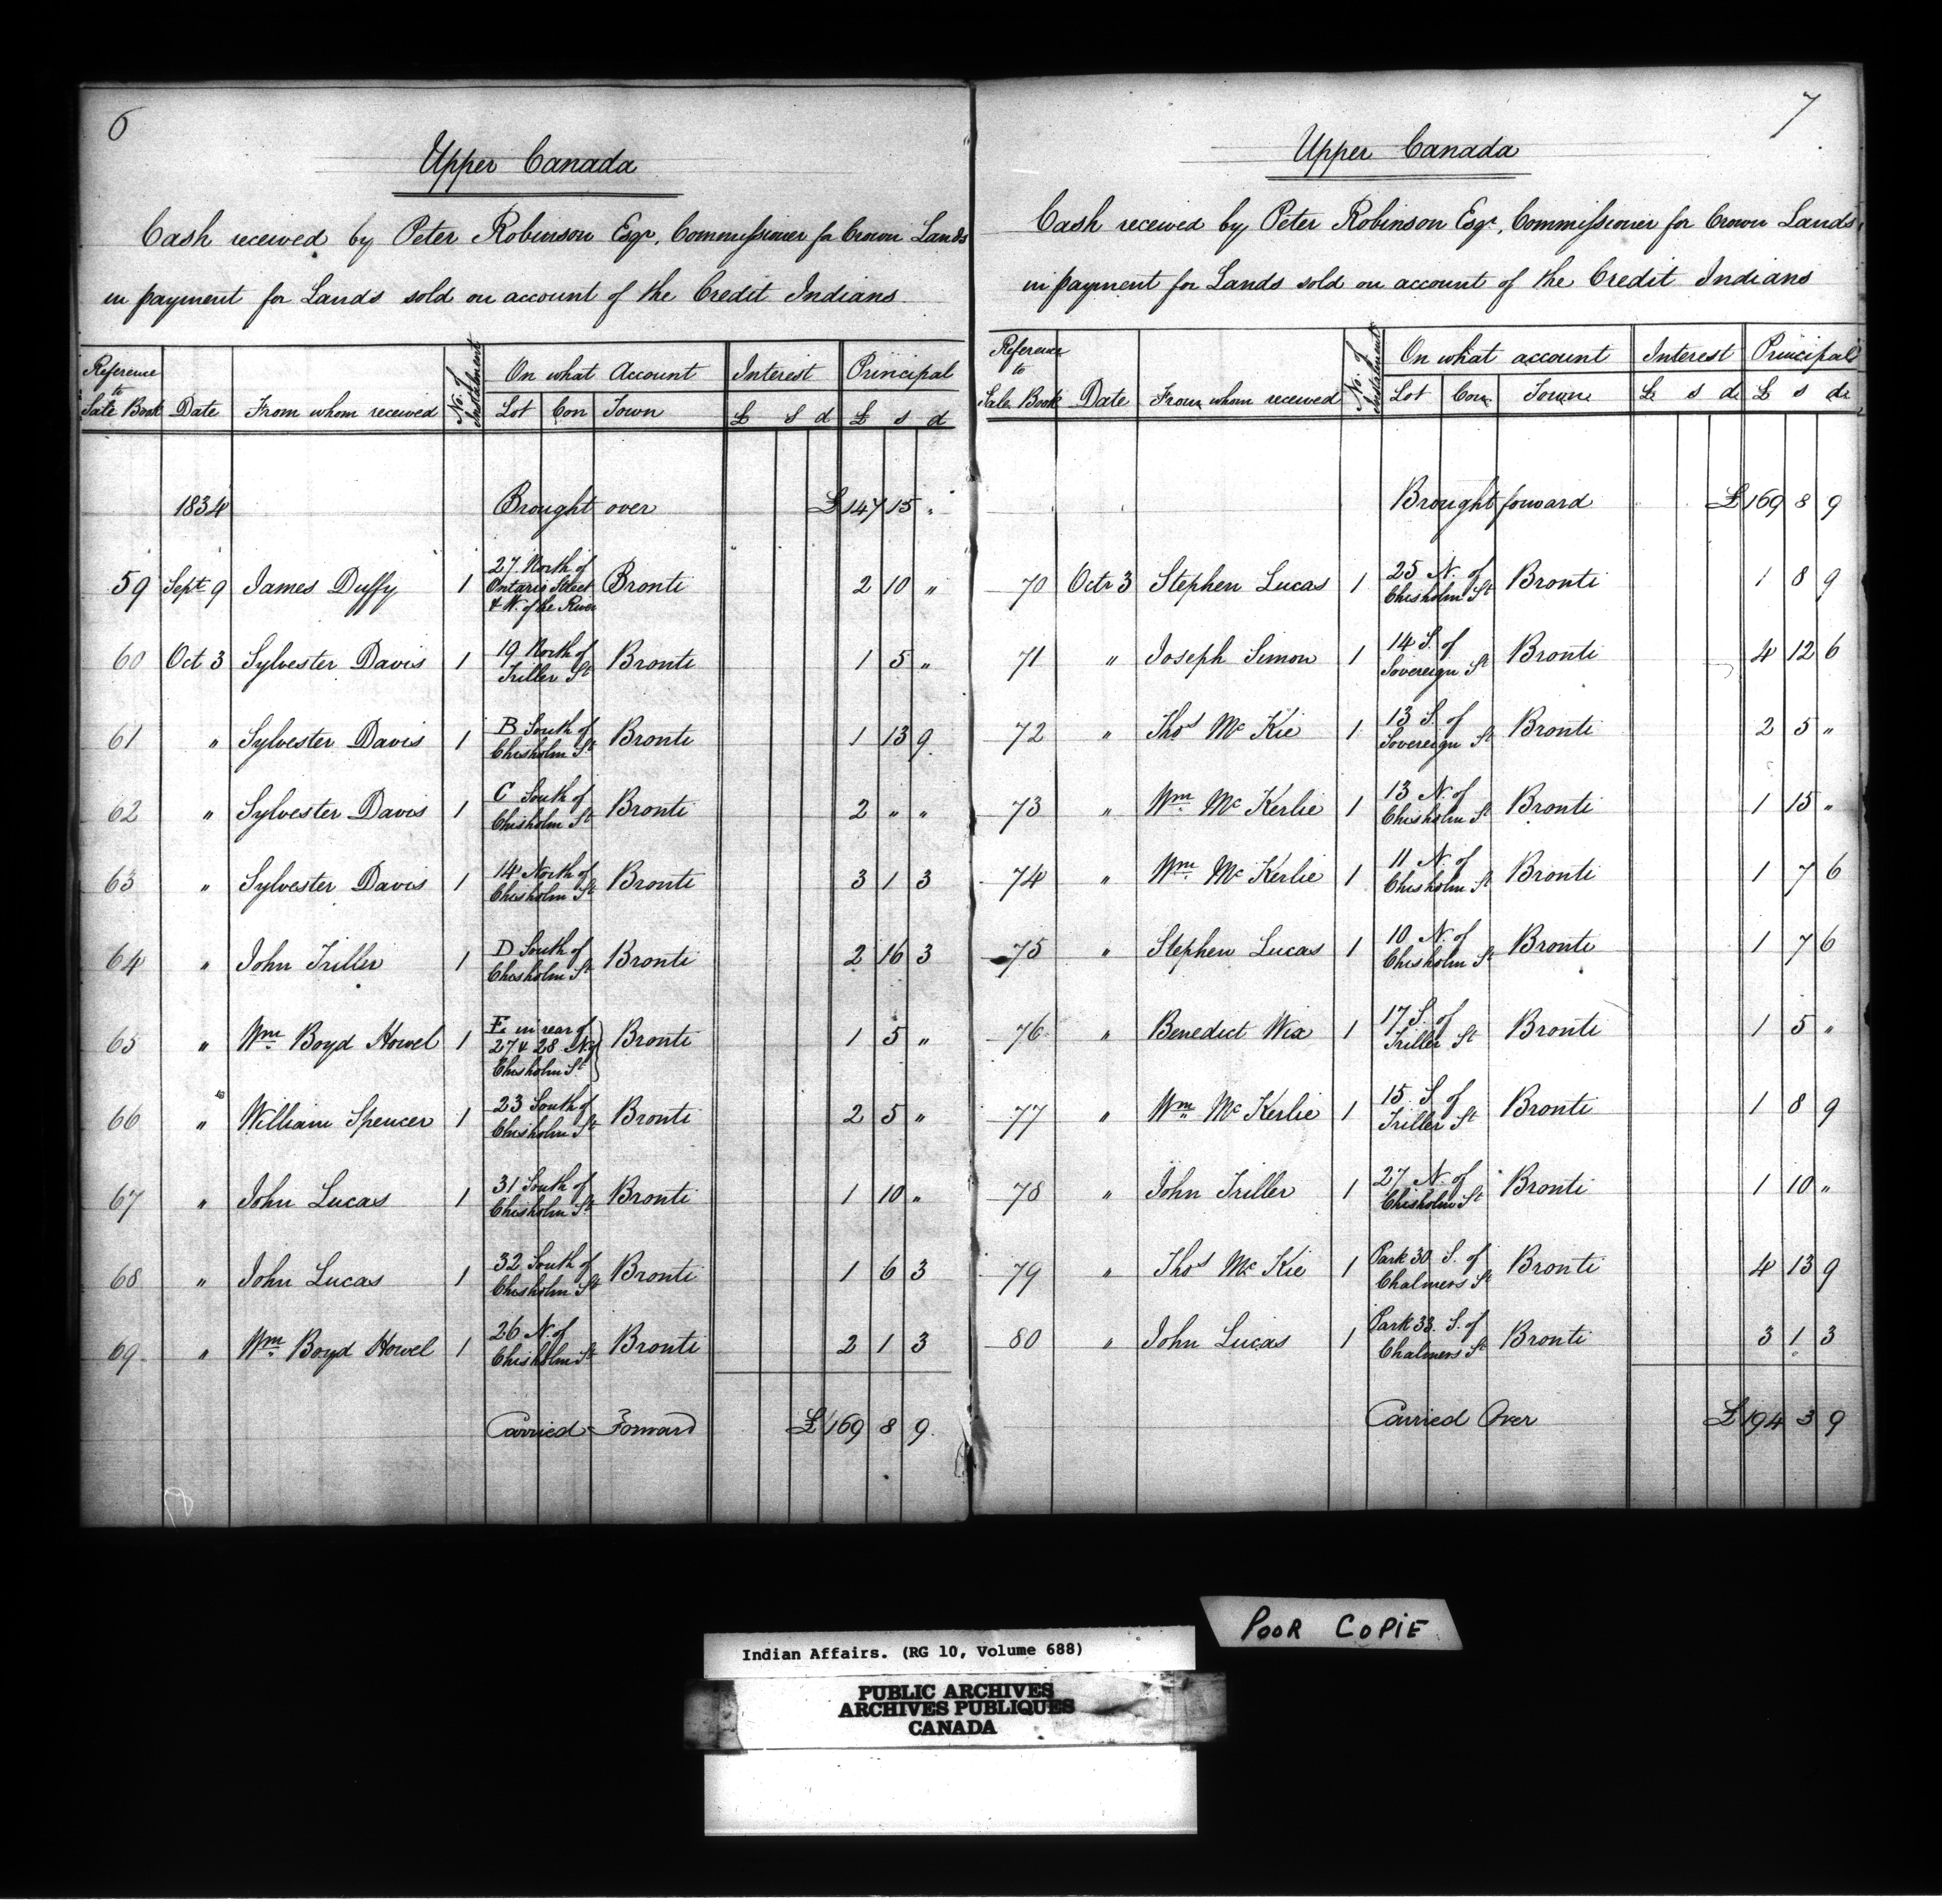 6
Upper Canada
Cash received by Peter Robinson Esqr, Commissioner for Crown Lands
in payment for Lands sold on account of the Credit Indians
Reference to Sale Book Date From whom received No. of Instalment On what Account Interest Principal
Lot Con Town £ s d £ s d
1834 Brought over £147 15 "
59 Sept 9 James Duffy 1 27 North of Ontario Street & W. of the River Bronti 2 10 "
60 Oct 3 Sylvester Davis 1 19 North of Triller St Bronti 1 5 "
61 " Sylvester Davis 1 B South of Chisholm St Bronti 1 13 9
62 " Sylvester Davis 1 C South of Chisholm St Bronti 2 " "
63 " Sylvester Davis 1 14 North of Chisholm St Bronti 3 1 3
64 " John Triller 1 D South of Chisholm St Bronti 2 16 3
65 " Wm Boyd Howel 1 E in rear of 27 & 28 N of Chisholm St Bronti 1 5 "
66 " William Spencer 1 23 South of Chisholm St Bronti 2 5 "
67 " John Lucas 1 31 South of Chisholm St Bronti 1 10 "
68 " John Lucas 1 32 South of Chisholm St Bronti 1 6 3
69 " Wm Boyd Howel 1 26 N. of Chisholm St Bronti 2 1 3
Carried Forward £169 8 9
7
Upper Canada
Cash received by Peter Robinson Esqr, Commissioner for Crown Lands
in payment for Lands sold on account of the Credit Indians
Reference to Sale Book Date From whom received No. of Instalment On what account Interest Principal
Lot Con Town £ s d £ s d
Brought forward £169 8 9
70 Octr 3 Stephen Lucas 1 25 N. of Chisholm St Bronti 1 8 9
71 " Joseph Simon 1 14 S. of Sovereign St Bronti 4 12 6
72 " Thos Mc Kie 1 13 S. of Sovereign St Bronti 2 5 "
73 " Wm Mc Kerlie 1 13 N. of Chisholm St Bronti 1 15 "
74 " Wm Mc Kerlie 1 11 N. of Chisholm St Bronti 1 7 6
75 " Stephen Lucas 1 10 N. of Chisholm St Bronti 1 7 6
76 " Benedict Wix 1 17 S. of Triller St Bronti 1 5 "
77 " Wm Mc Kerlie 1 15 S. of Triller St Bronti 1 8 9
78 " John Triller 1 27 N. of Chisholm St Bronti 1 10 "
79 " Thos Mc Kie 1 Park 30 S. of Chalmers St Bronti 4 13 9
80 " John Lucas 1 Park 33. S. of Chalmers St Bronti 3 1 3
Carried Over £194 3 9
POOR COPIE
Indian Affairs. (RG 10, Volume 688)
PUBLIC ARCHIVES
ARCHIVES PUBLIQUES
CANADA